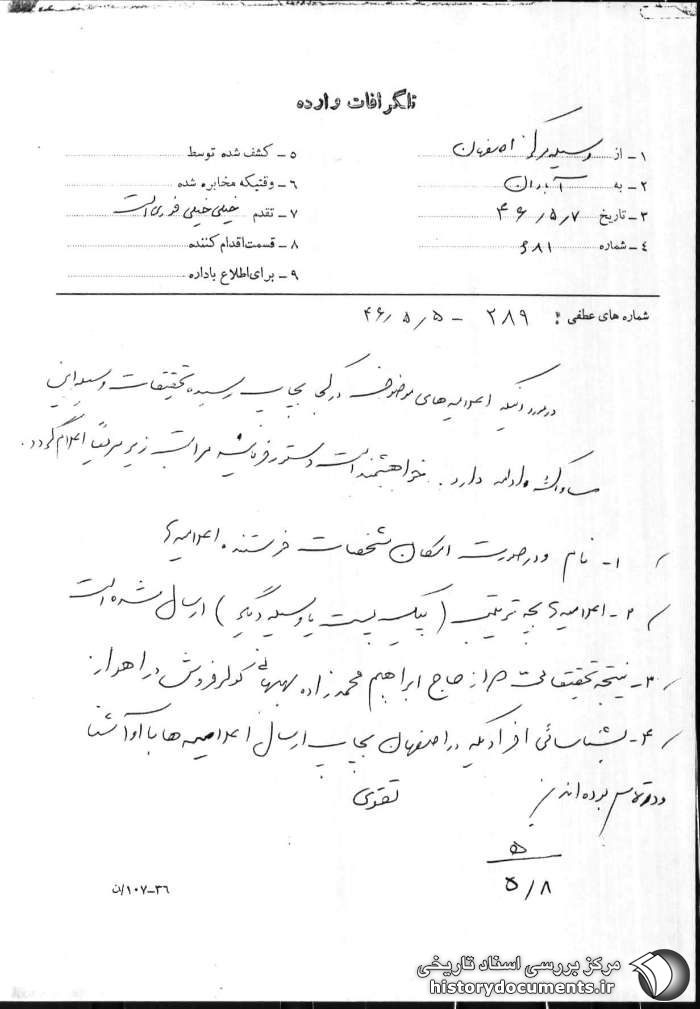 تلگرافات وارده
۱ - از اصفهان
۲ - به آبادان
۳ - تاریخ ۴۶/۵/۷
۴ - شماره ۶۸۱
۵ - کشف شده توسط
۶ - وقتیکه مخابره شده
۷ - تقدم خیلی خیلی فوری است
۸ - قسمت اقدام کننده
۹ - برای اطلاع باداره
شماره های عطفی : ۲۸۹ - ۴۶/۵/۵
در مورد اینکه اعلامیه های در کجا بچاپ رسیده تحقیقات وسیله این
ساواک ادامه دارد . خواهشمند است دستور فرمائید مراتب زیر سریعاً اعلام گردد .
۱ - نام و در صورت امکان مشخصات فرستنده اعلامیه
۲ - اعلامیه بچه ترتیب ( پیک پست یا وسیله دیگر ) ارسال شده است
۳ - نتیجه تحقیقات از حاج ابراهیم محمدزاده بهبهانی کولر فروش در اهواز
۴ - شناسائی افرادیکه در اصفهان بچاپ ارسال اعلامیه ها با او آشنا
و در تماس بوده اند
تقوی
۵
۵/۸
۳۶-۱۰۷/ن
مرکز بررسی اسناد تاریخی
historydocuments.ir